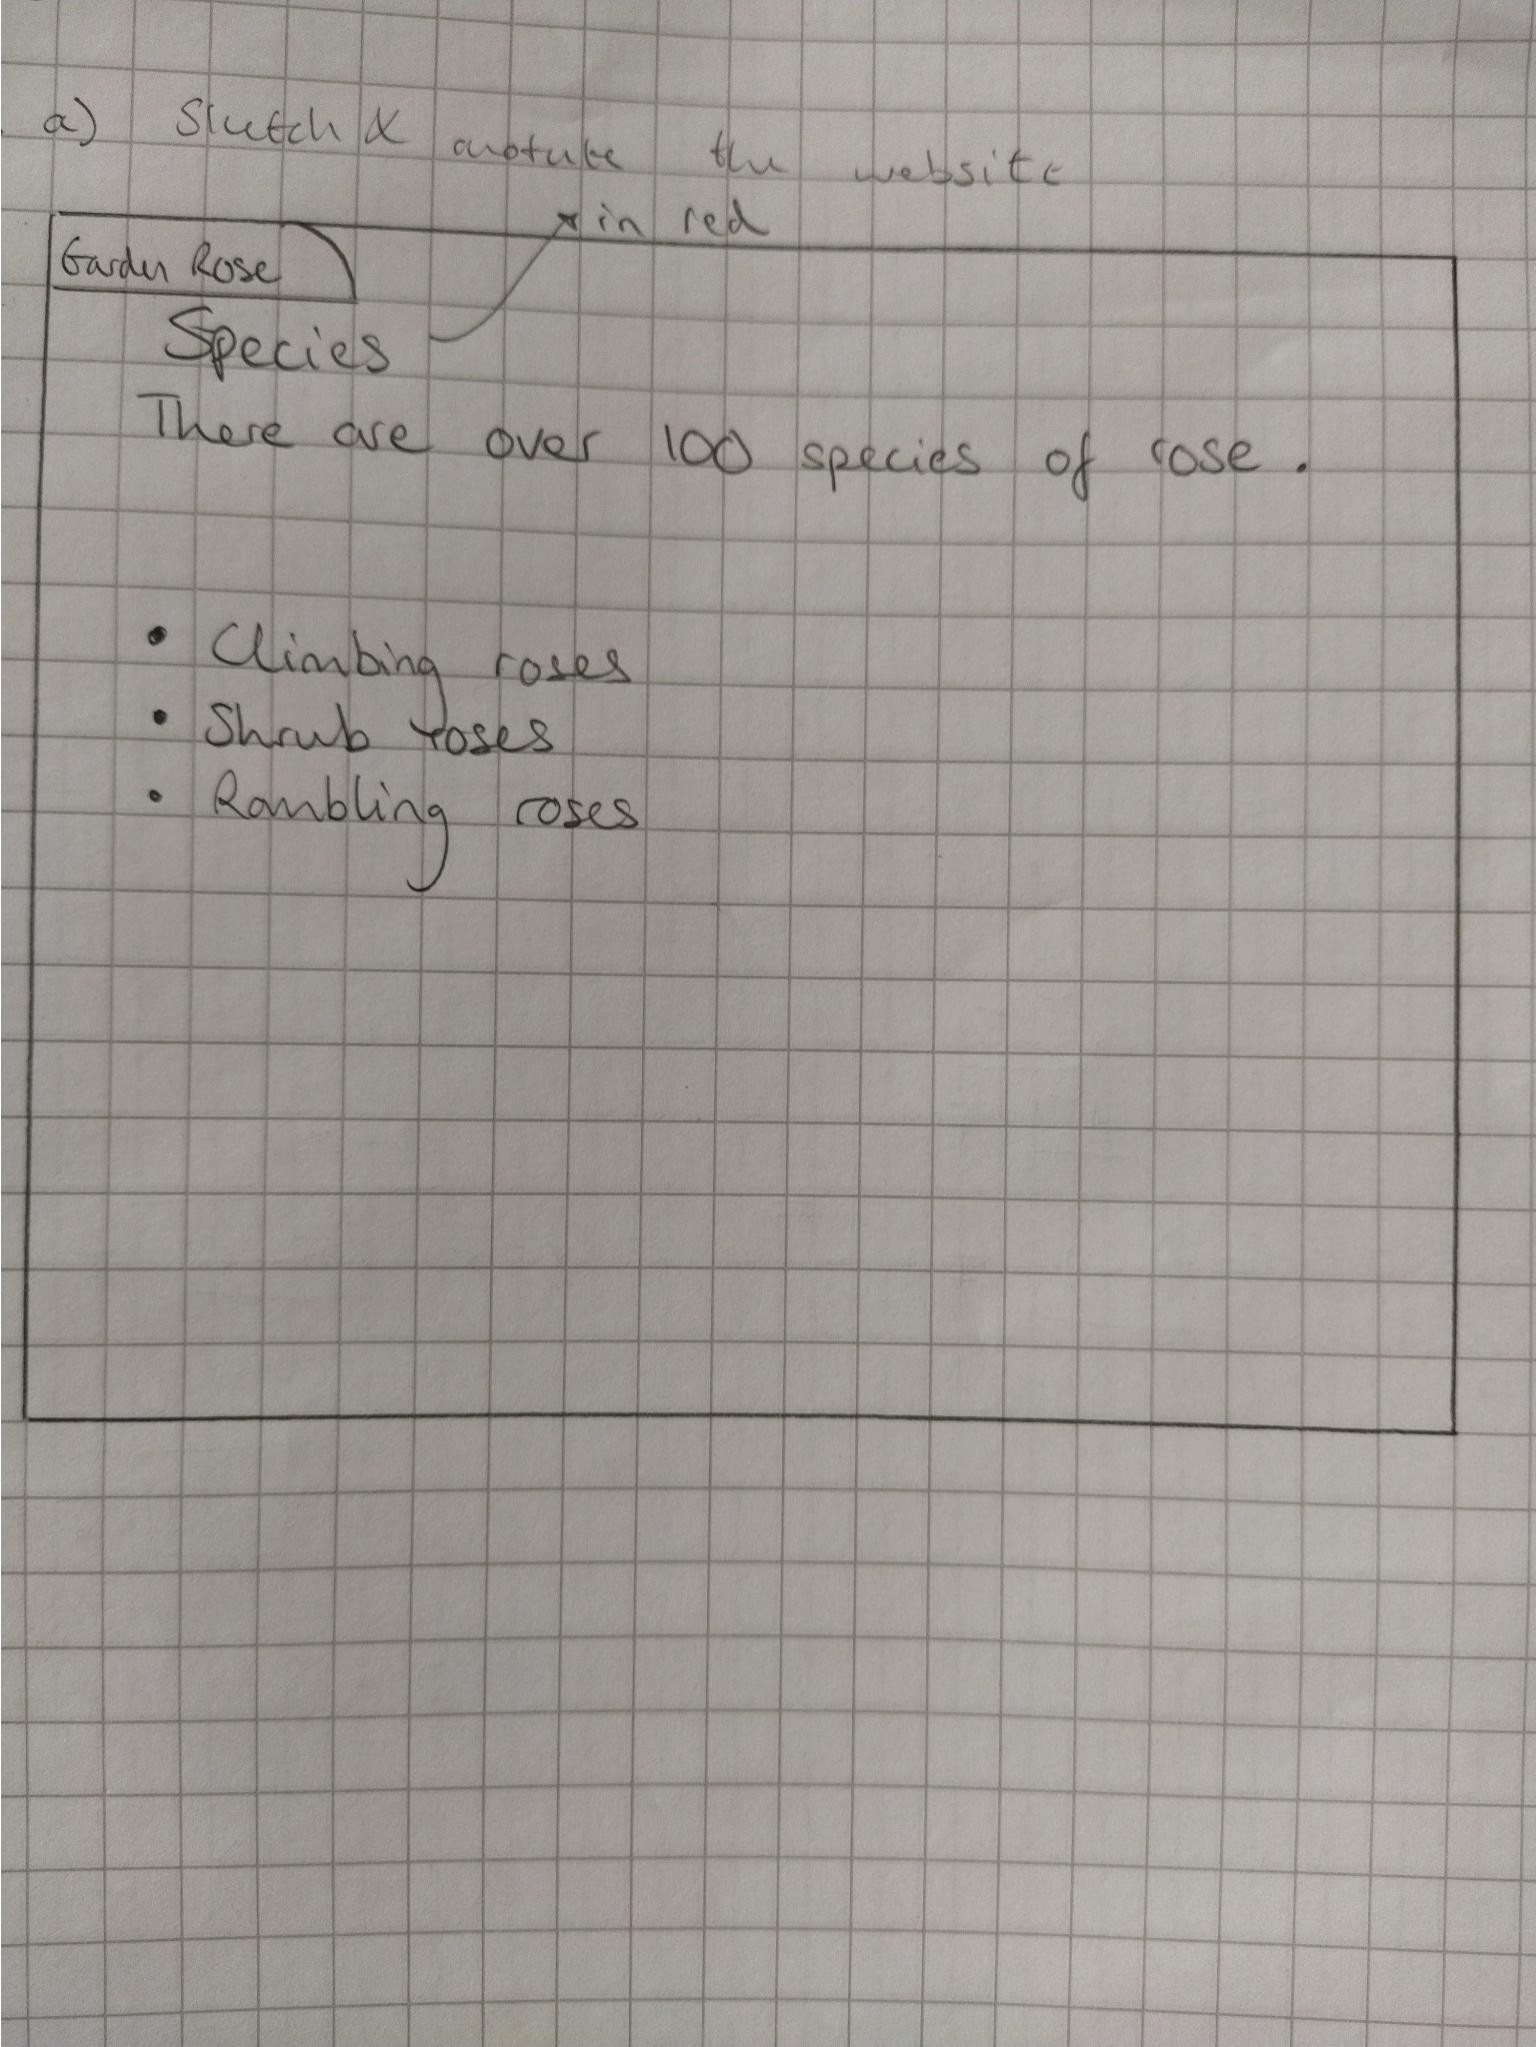 a) Sketch & anotate the website
in red
Garden Rose
Species
There are over 100 species of rose.
• Climbing roses
• Shrub roses
• Rambling roses